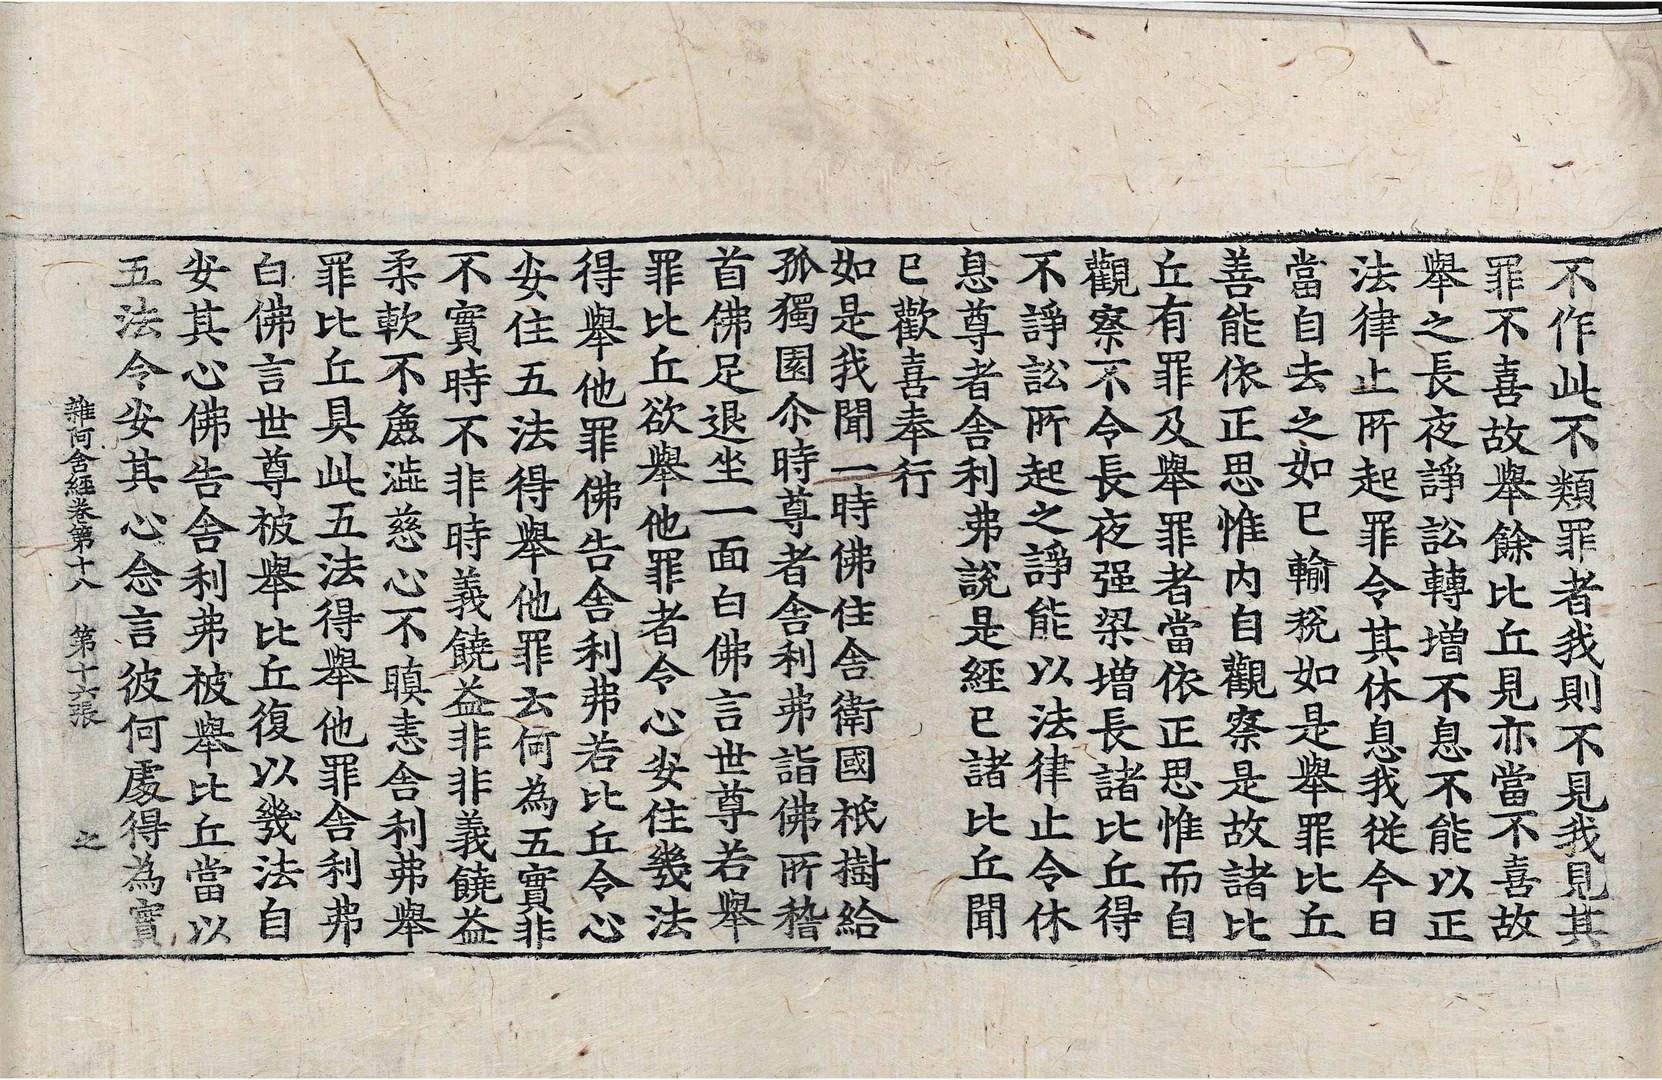 不作此不類罪者我則不見我見其
罪不喜故舉餘比丘見亦當不喜故
舉之長夜諍訟轉增不息不能以正
法律止所起罪令其休息我從今日
當自去之如已輸稅如是舉罪比丘
善能依正思惟內自觀察是故諸比
丘有罪及舉罪者當依正思惟而自
觀察不令長夜强梁增長諸比丘得
不諍訟所起之諍能以法律止令休
息尊者舍利弗說是經已諸比丘聞
已歡喜奉行
如是我聞一時佛住舍衛國祇樹給
孤獨園尒時尊者舍利弗詣佛所稽
首佛足退坐一面白佛言世尊若舉
罪比丘欲舉他罪者令心安住幾法
得舉他罪佛告舍利弗若比丘令心
安住五法得舉他罪云何為五實非
不實時不非時義饒益非非義饒益
柔軟不麁澁慈心不瞋恚舍利弗舉
罪比丘具此五法得舉他罪舍利弗
白佛言世尊被舉比丘復以幾法自
安其心佛告舍利弗被舉比丘當以
五法令安其心念言彼何處得為實
雜阿含經卷第十八 第十六張 之